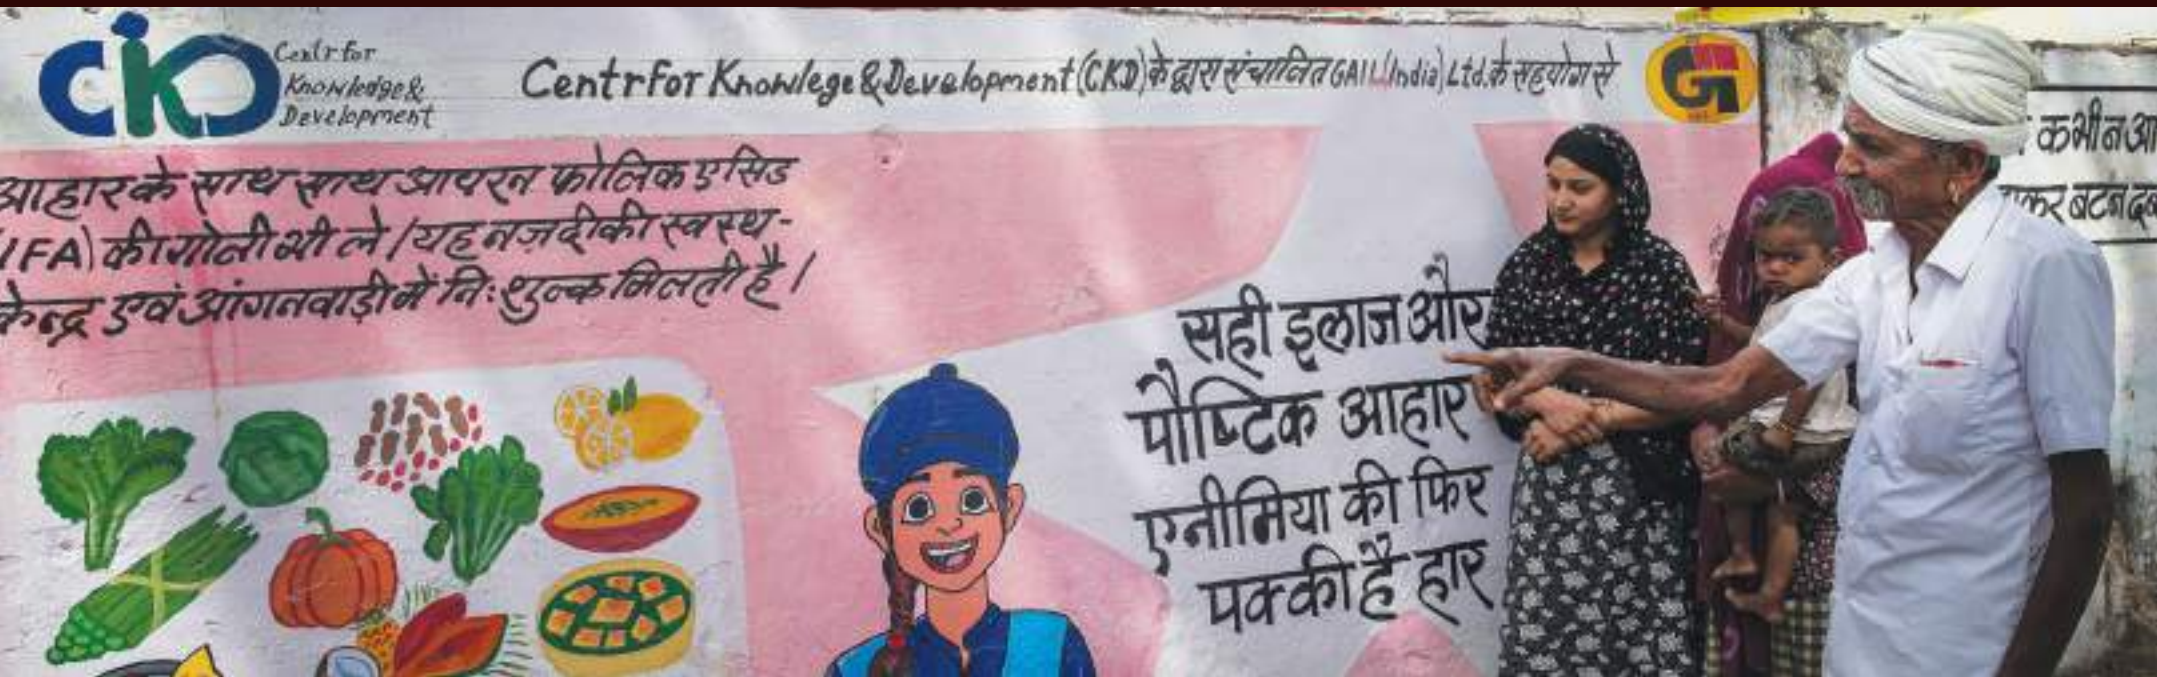 CKD
Centr for
Knowledge &
Development
Centr For Knowlege & Development (CKD) के द्वारा संचालित GAIL (India) Ltd. के सहयोग से
आहार के साथ साथ आयरन फोलिक एसिड
(IFA) की गोली भी ले । यह नज़दीकी स्वस्थ-
केन्द्र एवं आंगनवाड़ी में निःशुल्क मिलती है ।
सही इलाज और
पौष्टिक आहार
एनीमिया की फिर
पक्की है हार
कभी न
बटन